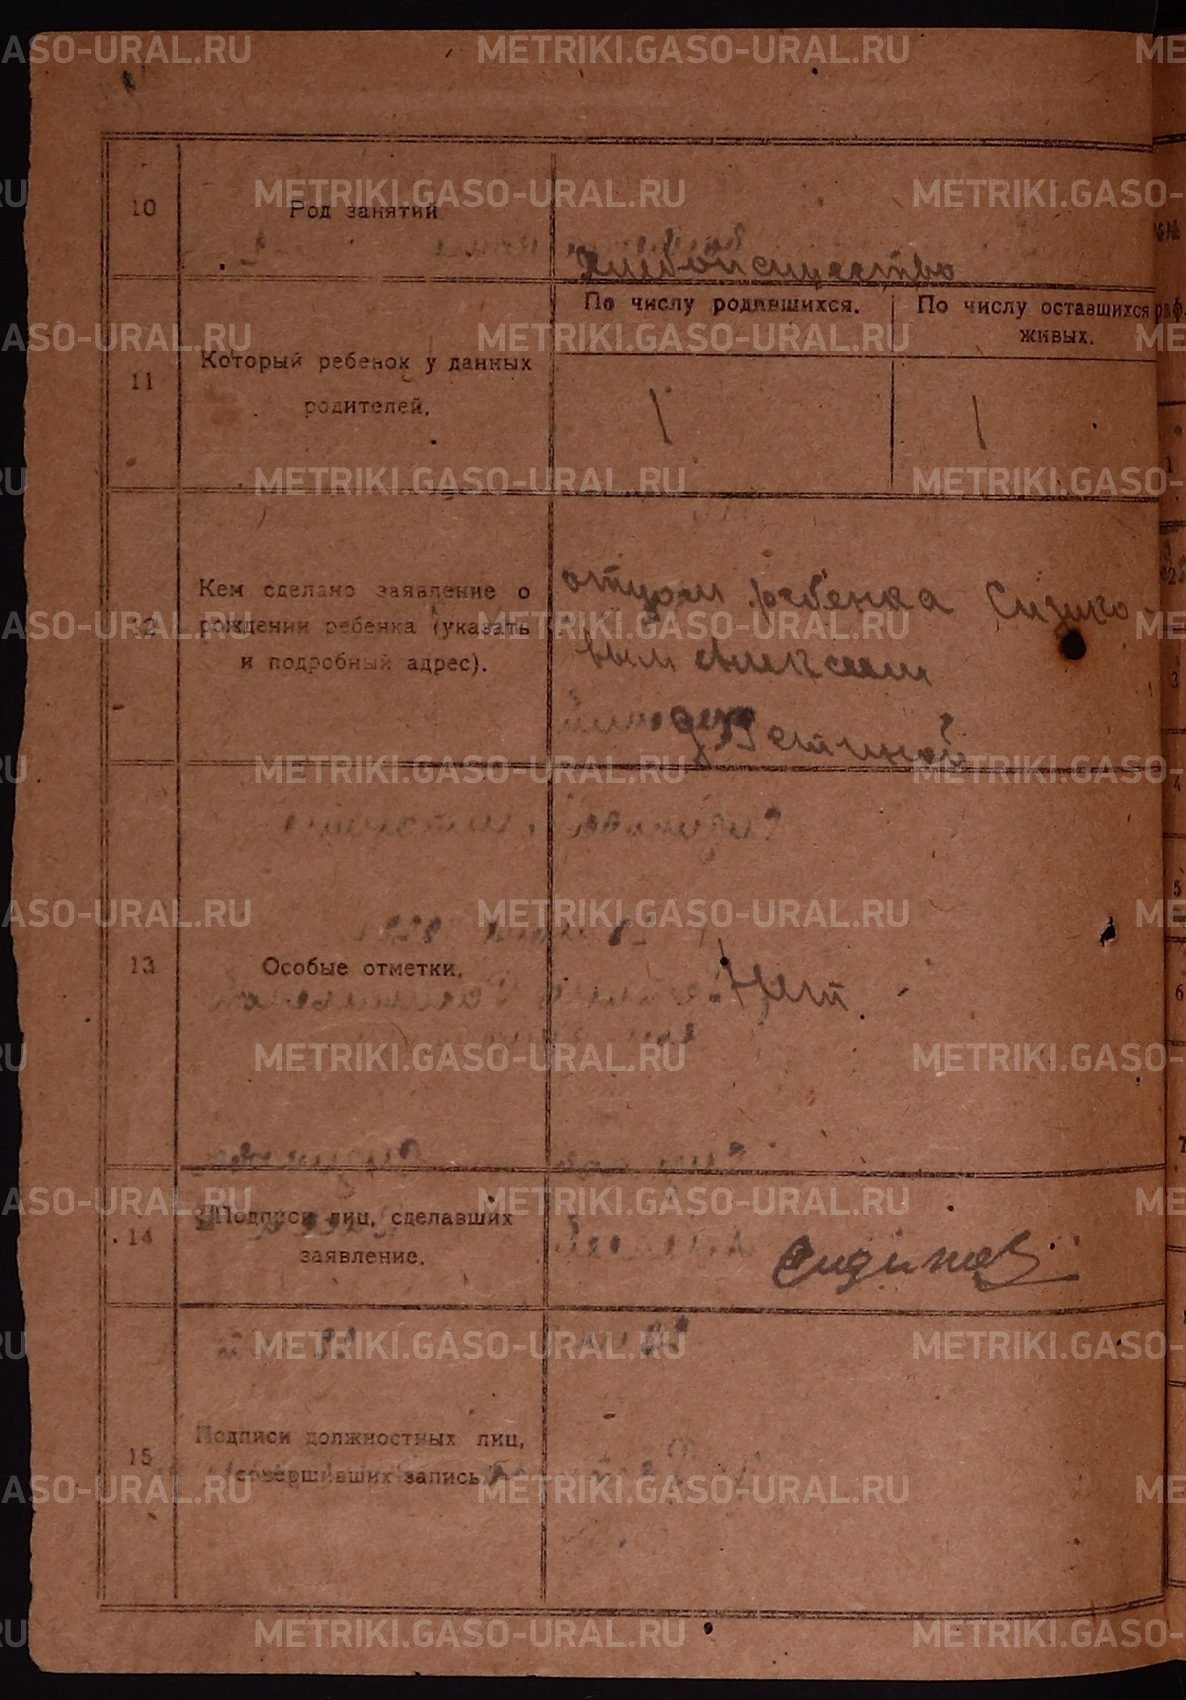 10
Род занятий
Хлебопашество
11
Который ребенок у данных
родителей.
По числу родившихся.
По числу оставшихся
живых.
1
1
12
Кем сделано заявление о
рождении ребенка (указать
и подробный адрес).
отцом ребенка Сизико-
вым Алексеем
дер.
13
Особые отметки.
Нет
14
Подписи лиц, сделавших
заявление.
15
Подписи должностных лиц,
совершивших запись.
METRIKI.GASO-URAL.RU